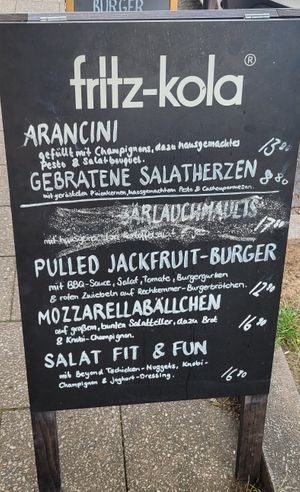 BURGER
fritz-kola®
ARANCINI
gefüllt mit Champignons, dazu hausgemachtes
Pesto & Salatbouquet. 13.80
GEBRATENE SALATHERZEN
mit gerösteten Pinienkernen, hausgemachtem Pesto & Cashewparmesan. 8.80
BÄRLAUCHMAULTS
mit hausgemachtem Kartoffelsalat 17.00
PULLED JACKFRUIT-BURGER
mit BBQ-Sauce, Salat, Tomate, Burgergurken
& roten Zwiebeln auf Rechkemmer-Burgerbrötchen. 12.90
MOZZARELLABÄLLCHEN
auf großem, bunten Salatteller, dazu Brot
& Knobi-Champignon. 16.90
SALAT FIT & FUN
mit Beyond Tschicken-Nuggets, Knobi-
Champignon & Joghurt-Dressing. 16.90